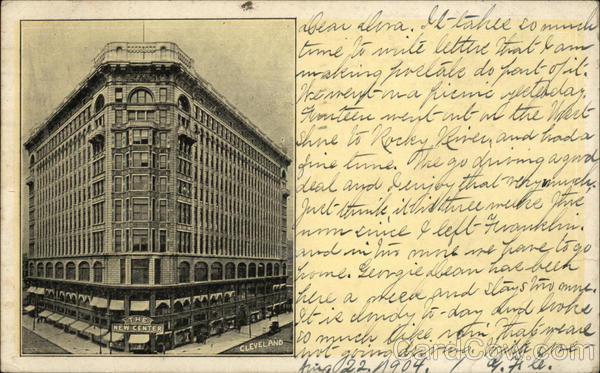 Dear Dora. It takes so much
time to write letters that I am
making postals do part of it.
We went on a picnic yesterday.
Fourteen went out on the West
Shore to Rocky River, and had a
fine time. We go driving a good
deal and I enjoy that very much.
Just think, it is three weeks this
noon since I left Franklin.
and in two more we have to go
home. Georgie Dean has been
here a week and stays two more.
It is cloudy to-day and looks
so much like rain that we are
not going
Aug. 22, 1904.
THE
NEW CENTER
CLEVELAND
CardCow.com